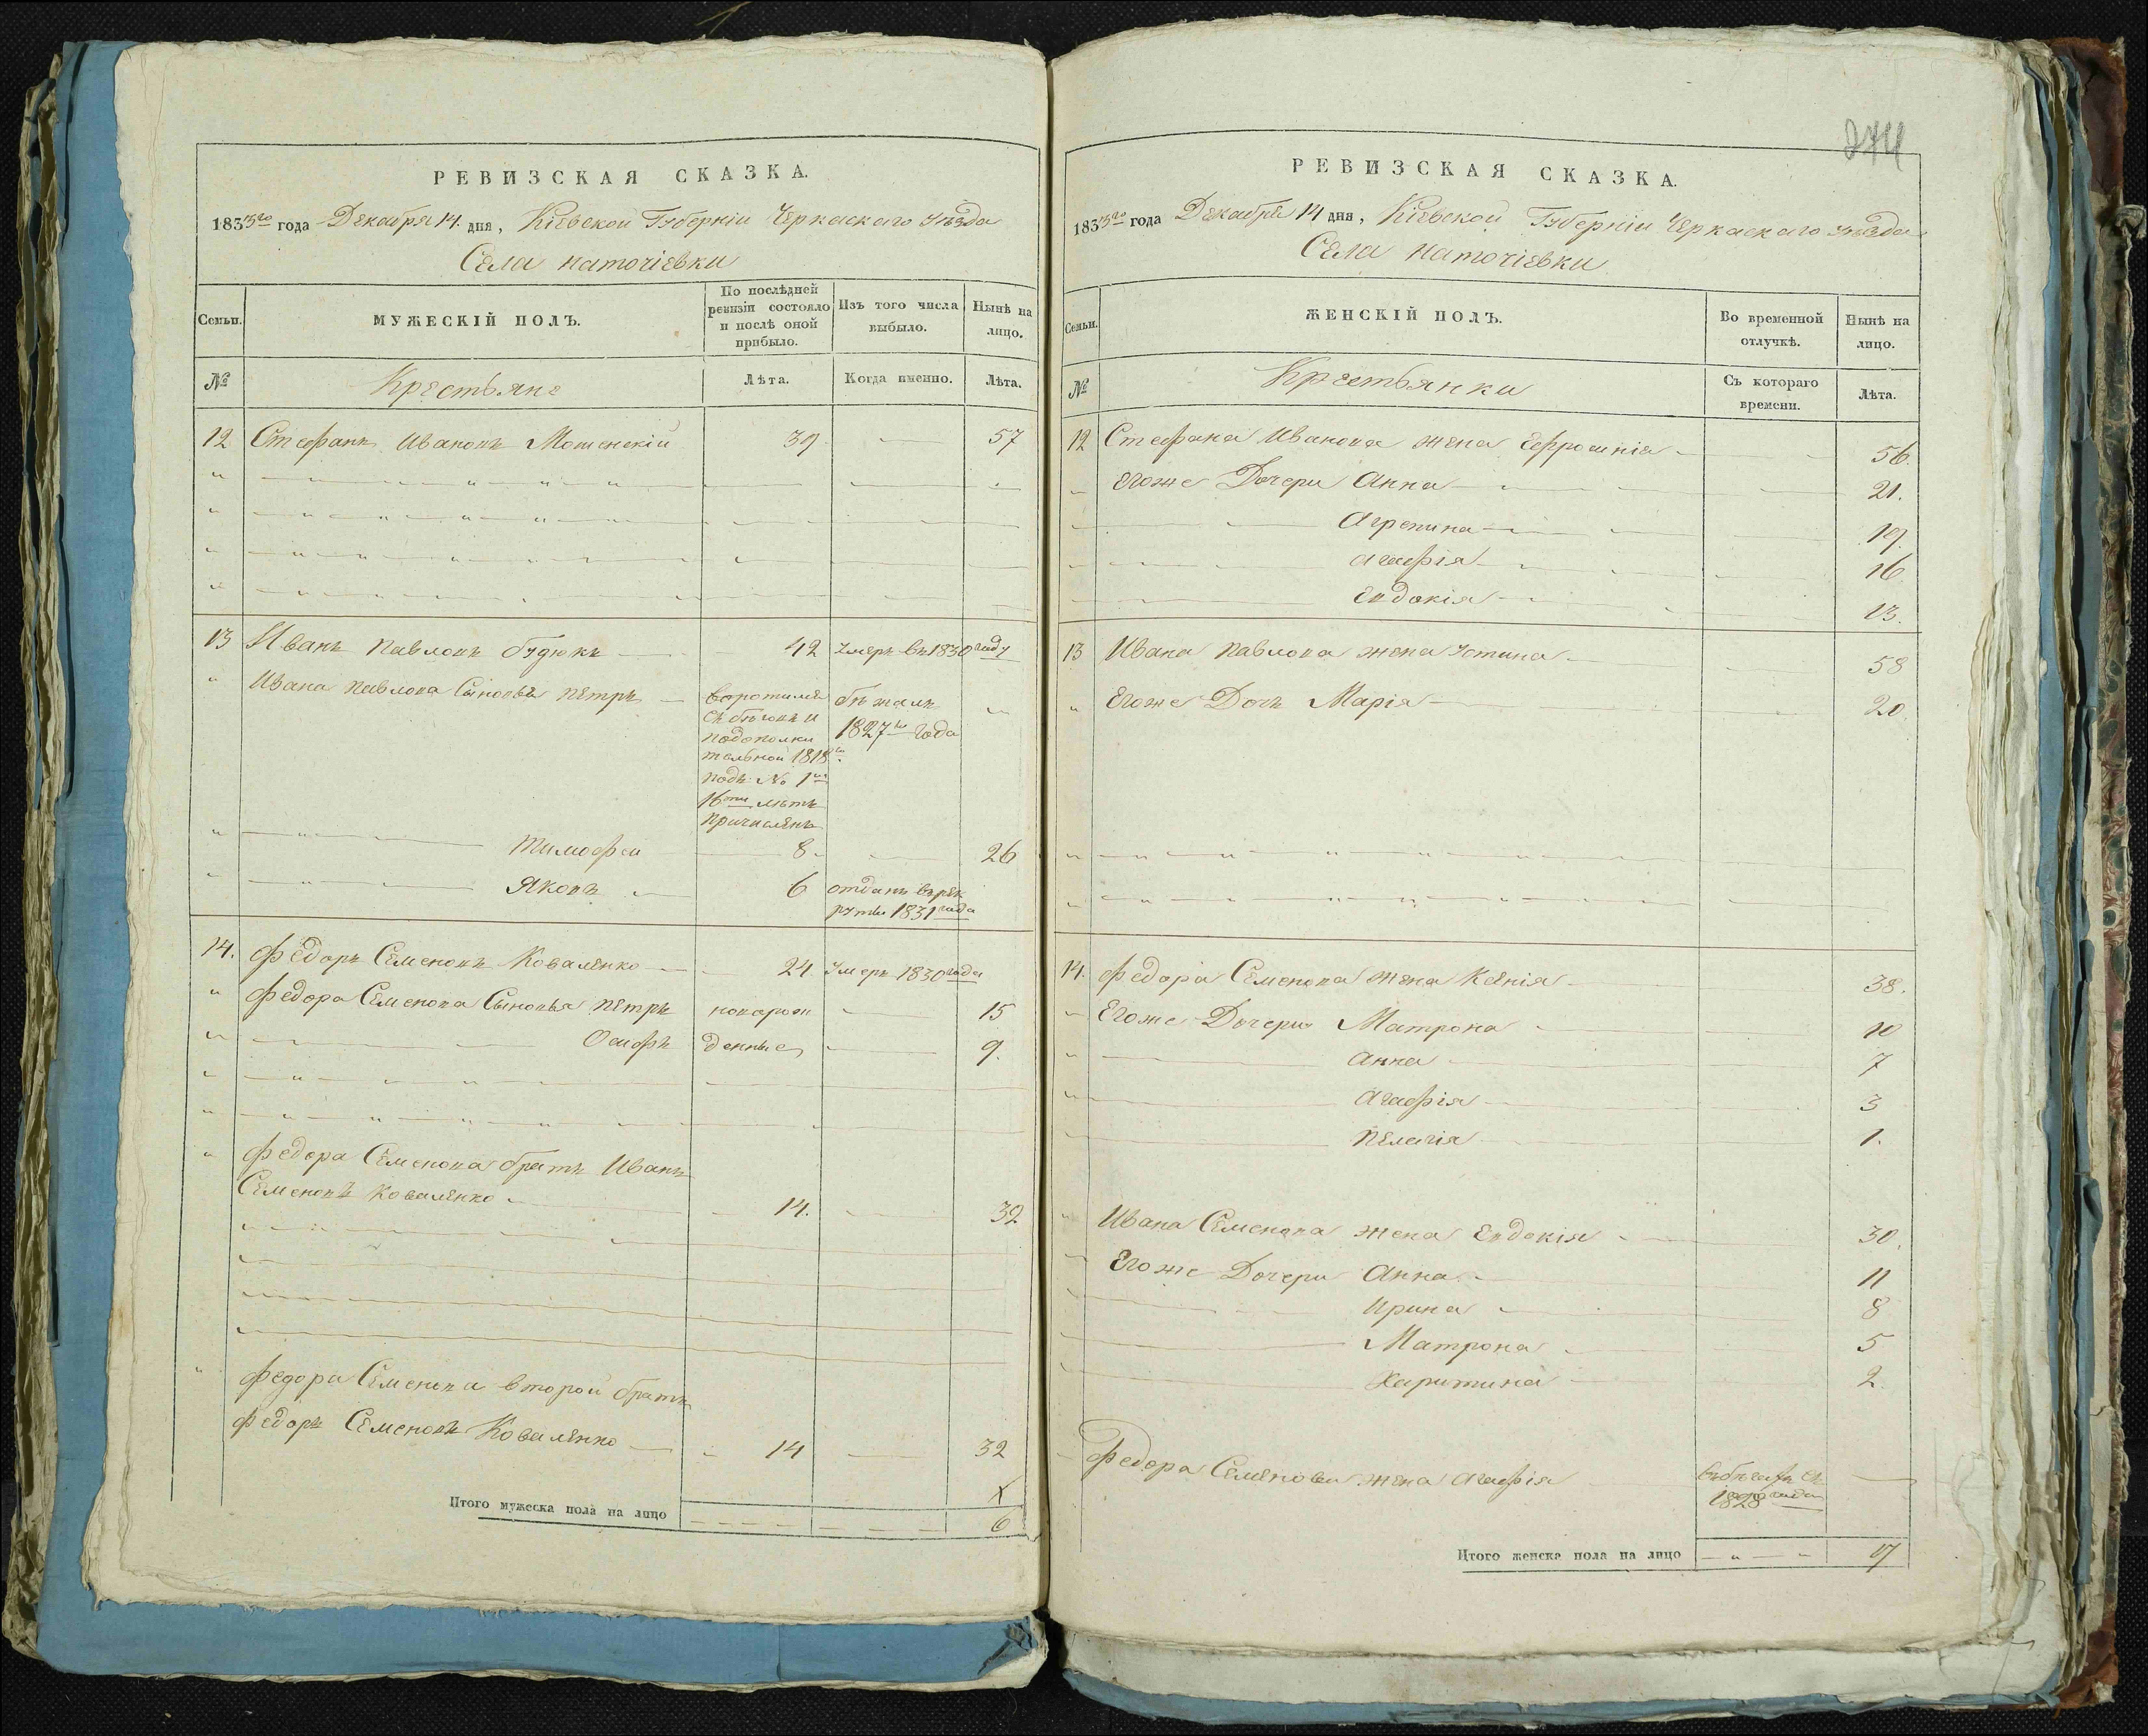 РЕВИЗСКАЯ СКАЗКА.
1835го года Декабря 14. дня, Кіевской Губерніи Черкаскаго Уѣзда
Села
Семьи.
МУЖЕСКІЙ ПОЛЪ.
По послѣдней ревизіи состояло и послѣ оной прибыло.
Изъ того числа выбыло.
Нынѣ на лицо.
№
Крестьяне
Лѣта.
Когда именно.
Лѣта.
12 Стефанъ Ивановъ Мошенскій 39 57
13 Иванъ Павловъ 42 Умеръ въ 1830 году
Ивана Павлова Сыновья Петръ
воротился
съ бѣговъ и
подополни
тельной 1818го
подъ № 1мъ
16ти лѣтъ
причисленъ
бѣжалъ
1827го года
Тимофей 8 26
Яковъ 6 отданъ врек
руты 1831 года
14. Федоръ Семеновъ Коваленко 24 Умеръ 1830 года
Федора Семенова Сыновья Петръ новорож 15
Осифъ денные 9.
Федора Семенова братъ Иванъ
Семеновъ Коваленко 14. 32
Федора Семенова второй братъ
Федоръ Семеновъ Коваленко 14 32
Итого мужеска пола на лицо 6
274
РЕВИЗСКАЯ СКАЗКА.
1835го года Декабря 14 дня, Кіевской Губерніи Черкаскаго Уѣзда
Села
Семьи.
ЖЕНСКІЙ ПОЛЪ.
Во временной отлучкѣ.
Нынѣ на лицо.
№
Крестьянки
Съ котораго времени.
Лѣта.
12 Стефана Иванова жена Ефросинія 56.
Егоже Дочери Анна 21.
Агрепина 19.
Агафія 16.
Евдокія 13.
13 Ивана Павлова жена Устина 58
Егоже Дочь Марія 20.
14. Федора Семенова жена Ксенія 38.
Егоже Дочери Матрона 10
Анна 7
Агафія 3
Пелагія 1.
Ивана Семенова жена Евдокія 30.
Егоже Дочери Анна 11
Ирина 8
Матрона 5
Харитина 2.
Федора Семенова жена Агафія вбѣгахъ съ
1828 года
Итого женска пола на лицо 17